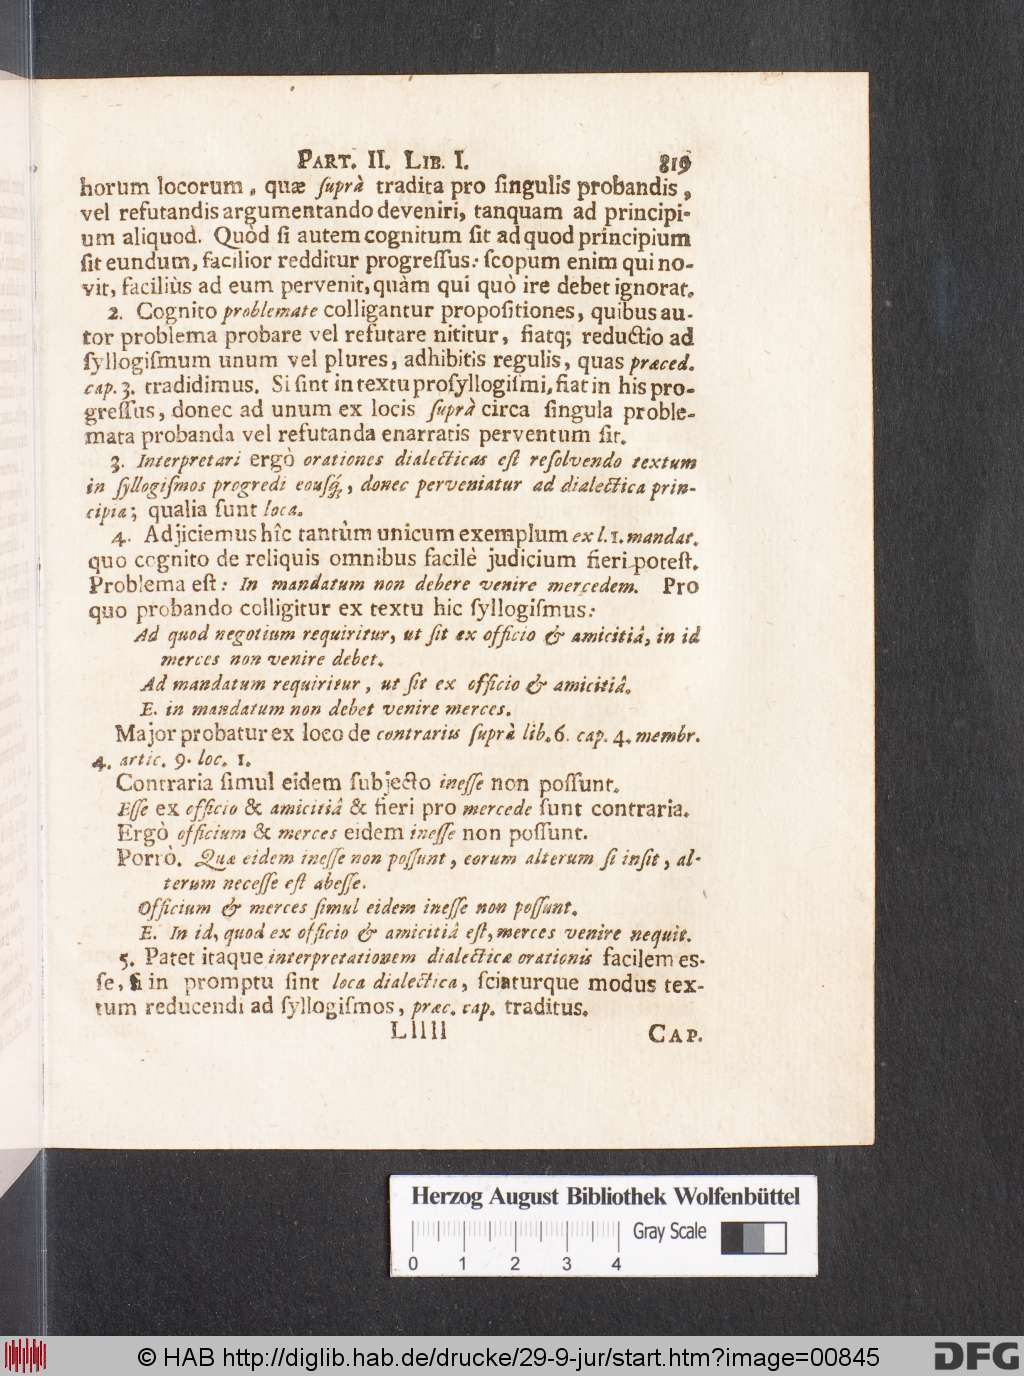 PART. II. LIB. I. 819
horum locorum, quæ ſuprà tradita pro ſingulis probandis,
vel refutandis argumentando deveniri, tanquam ad principi-
um aliquod. Quòd ſi autem cognitum ſit ad quod principium
ſit eundum, facilior redditur progreſſus: ſcopum enim qui no-
vit, faciliùs ad eum pervenit, quàm qui quò ire debet ignorat.
2. Cognito problemate colligantur propoſitiones, quibus au-
tor problema probare vel refutare nititur, fiatq; reductio ad
ſyllogiſmum unum vel plures, adhibitis regulis, quas præced.
cap. 3. tradidimus. Si ſint in textu proſyllogiſmi, fiat in his pro-
greſſus, donec ad unum ex locis ſuprà circa ſingula proble-
mata probanda vel refutanda enarratis perventum ſit.
3. Interpretari ergò orationes dialecticas eſt reſolvendo textum
in ſyllogiſmos progredi eouſq́;, donec perveniatur ad dialectica prin-
cipia; qualia ſunt loca.
4. Adjiciemus hîc tantùm unicum exemplum ex l. 1. mandat.
quo cognito de reliquis omnibus facilè judicium fieri poteſt.
Problema eſt: In mandatum non debere venire mercedem. Pro
quo probando colligitur ex textu hic ſyllogiſmus:
Ad quod negotium requiritur, ut ſit ex officio & amicitiâ, in id
merces non venire debet.
Ad mandatum requiritur, ut ſit ex officio & amicitiâ.
E. in mandatum non debet venire merces.
Major probatur ex loco de contrariis ſuprà lib. 6. cap. 4. membr.
4. artic. 9. loc. 1.
Contraria ſimul eidem ſubjecto ineſſe non poſſunt.
Eſſe ex officio & amicitiâ & fieri pro mercede ſunt contraria.
Ergò officium & merces eidem ineſſe non poſſunt.
Porrò. Quæ eidem ineſſe non poſſunt, eorum alterum ſi inſit, al-
terum neceſſe eſt abeſſe.
Officium & merces ſimul eidem ineſſe non poſſunt.
E. In id, quod ex officio & amicitiâ eſt, merces venire nequit.
5. Patet itaque interpretationem dialecticæ orationis facilem eſ-
ſe, ſi in promptu ſint loca dialectica, ſciaturque modus tex-
tum reducendi ad ſyllogiſmos, præc. cap. traditus.
Lllll CAP.
Herzog August Bibliothek Wolfenbüttel
Gray Scale
0 1 2 3 4
© HAB http://diglib.hab.de/drucke/29-9-jur/start.htm?image=00845
DFG